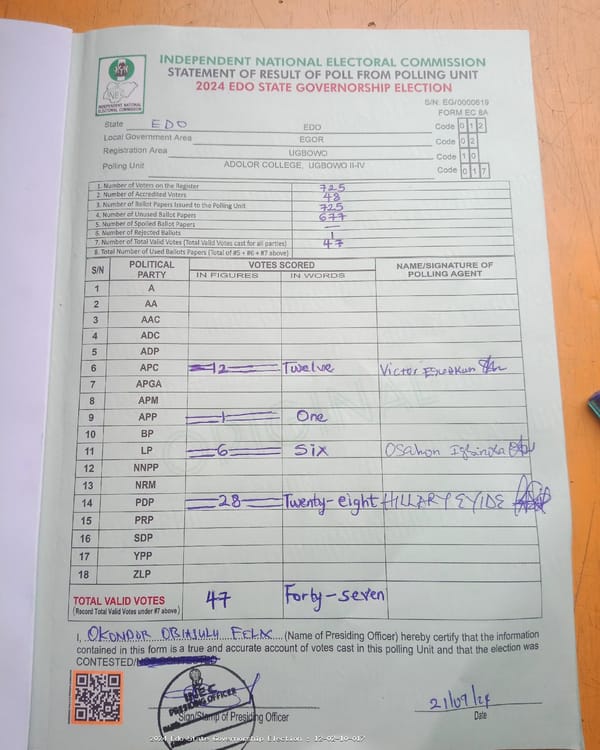 INDEPENDENT NATIONAL ELECTORAL COMMISSION
STATEMENT OF RESULT OF POLL FROM POLLING UNIT
2024 EDO STATE GOVERNORSHIP ELECTION
INDEPENDENT NATIONAL ELECTORAL COMMISSION
S/N: EG/0000619
FORM EC 8A
State EDO EDO Code 0 1 2
Local Government Area EGOR Code 0 2
Registration Area UGBOWO Code 1 0
Polling Unit ADOLOR COLLEGE, UGBOWO II-IV Code 0 1 7
1. Number of Voters on the Register 725
2. Number of Accredited Voters 48
3. Number of Ballot Papers Issued to the Polling Unit 725
4. Number of Unused Ballot Papers 677
5. Number of Spoiled Ballot Papers —
6. Number of Rejected Ballots 1
7. Number of Total Valid Votes (Total Valid Votes cast for all parties) 47
8. Total Number of Used Ballots Papers (Total of #5 + #6 + #7 above)
S/N POLITICAL PARTY VOTES SCORED NAME/SIGNATURE OF POLLING AGENT
IN FIGURES IN WORDS
1 A
2 AA
3 AAC
4 ADC
5 ADP
6 APC 12 Twelve Victor
7 APGA
8 APM
9 APP 1 One
10 BP
11 LP 6 Six Osahon
12 NNPP
13 NRM
14 PDP 28 Twenty-eight HILLARY EYIDE
15 PRP
16 SDP
17 YPP
18 ZLP
ORIGINAL
TOTAL VALID VOTES 47 Forty-seven
(Record Total Valid Votes under #7 above)
I, OKONDOR OBIAJULU FELIX (Name of Presiding Officer) hereby certify that the information
contained in this form is a true and accurate account of votes cast in this polling Unit and that the election was
CONTESTED/NOT CONTESTED
INEC
PRESIDING OFFICER
Sign/Stamp of Presiding Officer
21/09/24
Date
2024 Edo State Governorship Election - 12-02-10-017